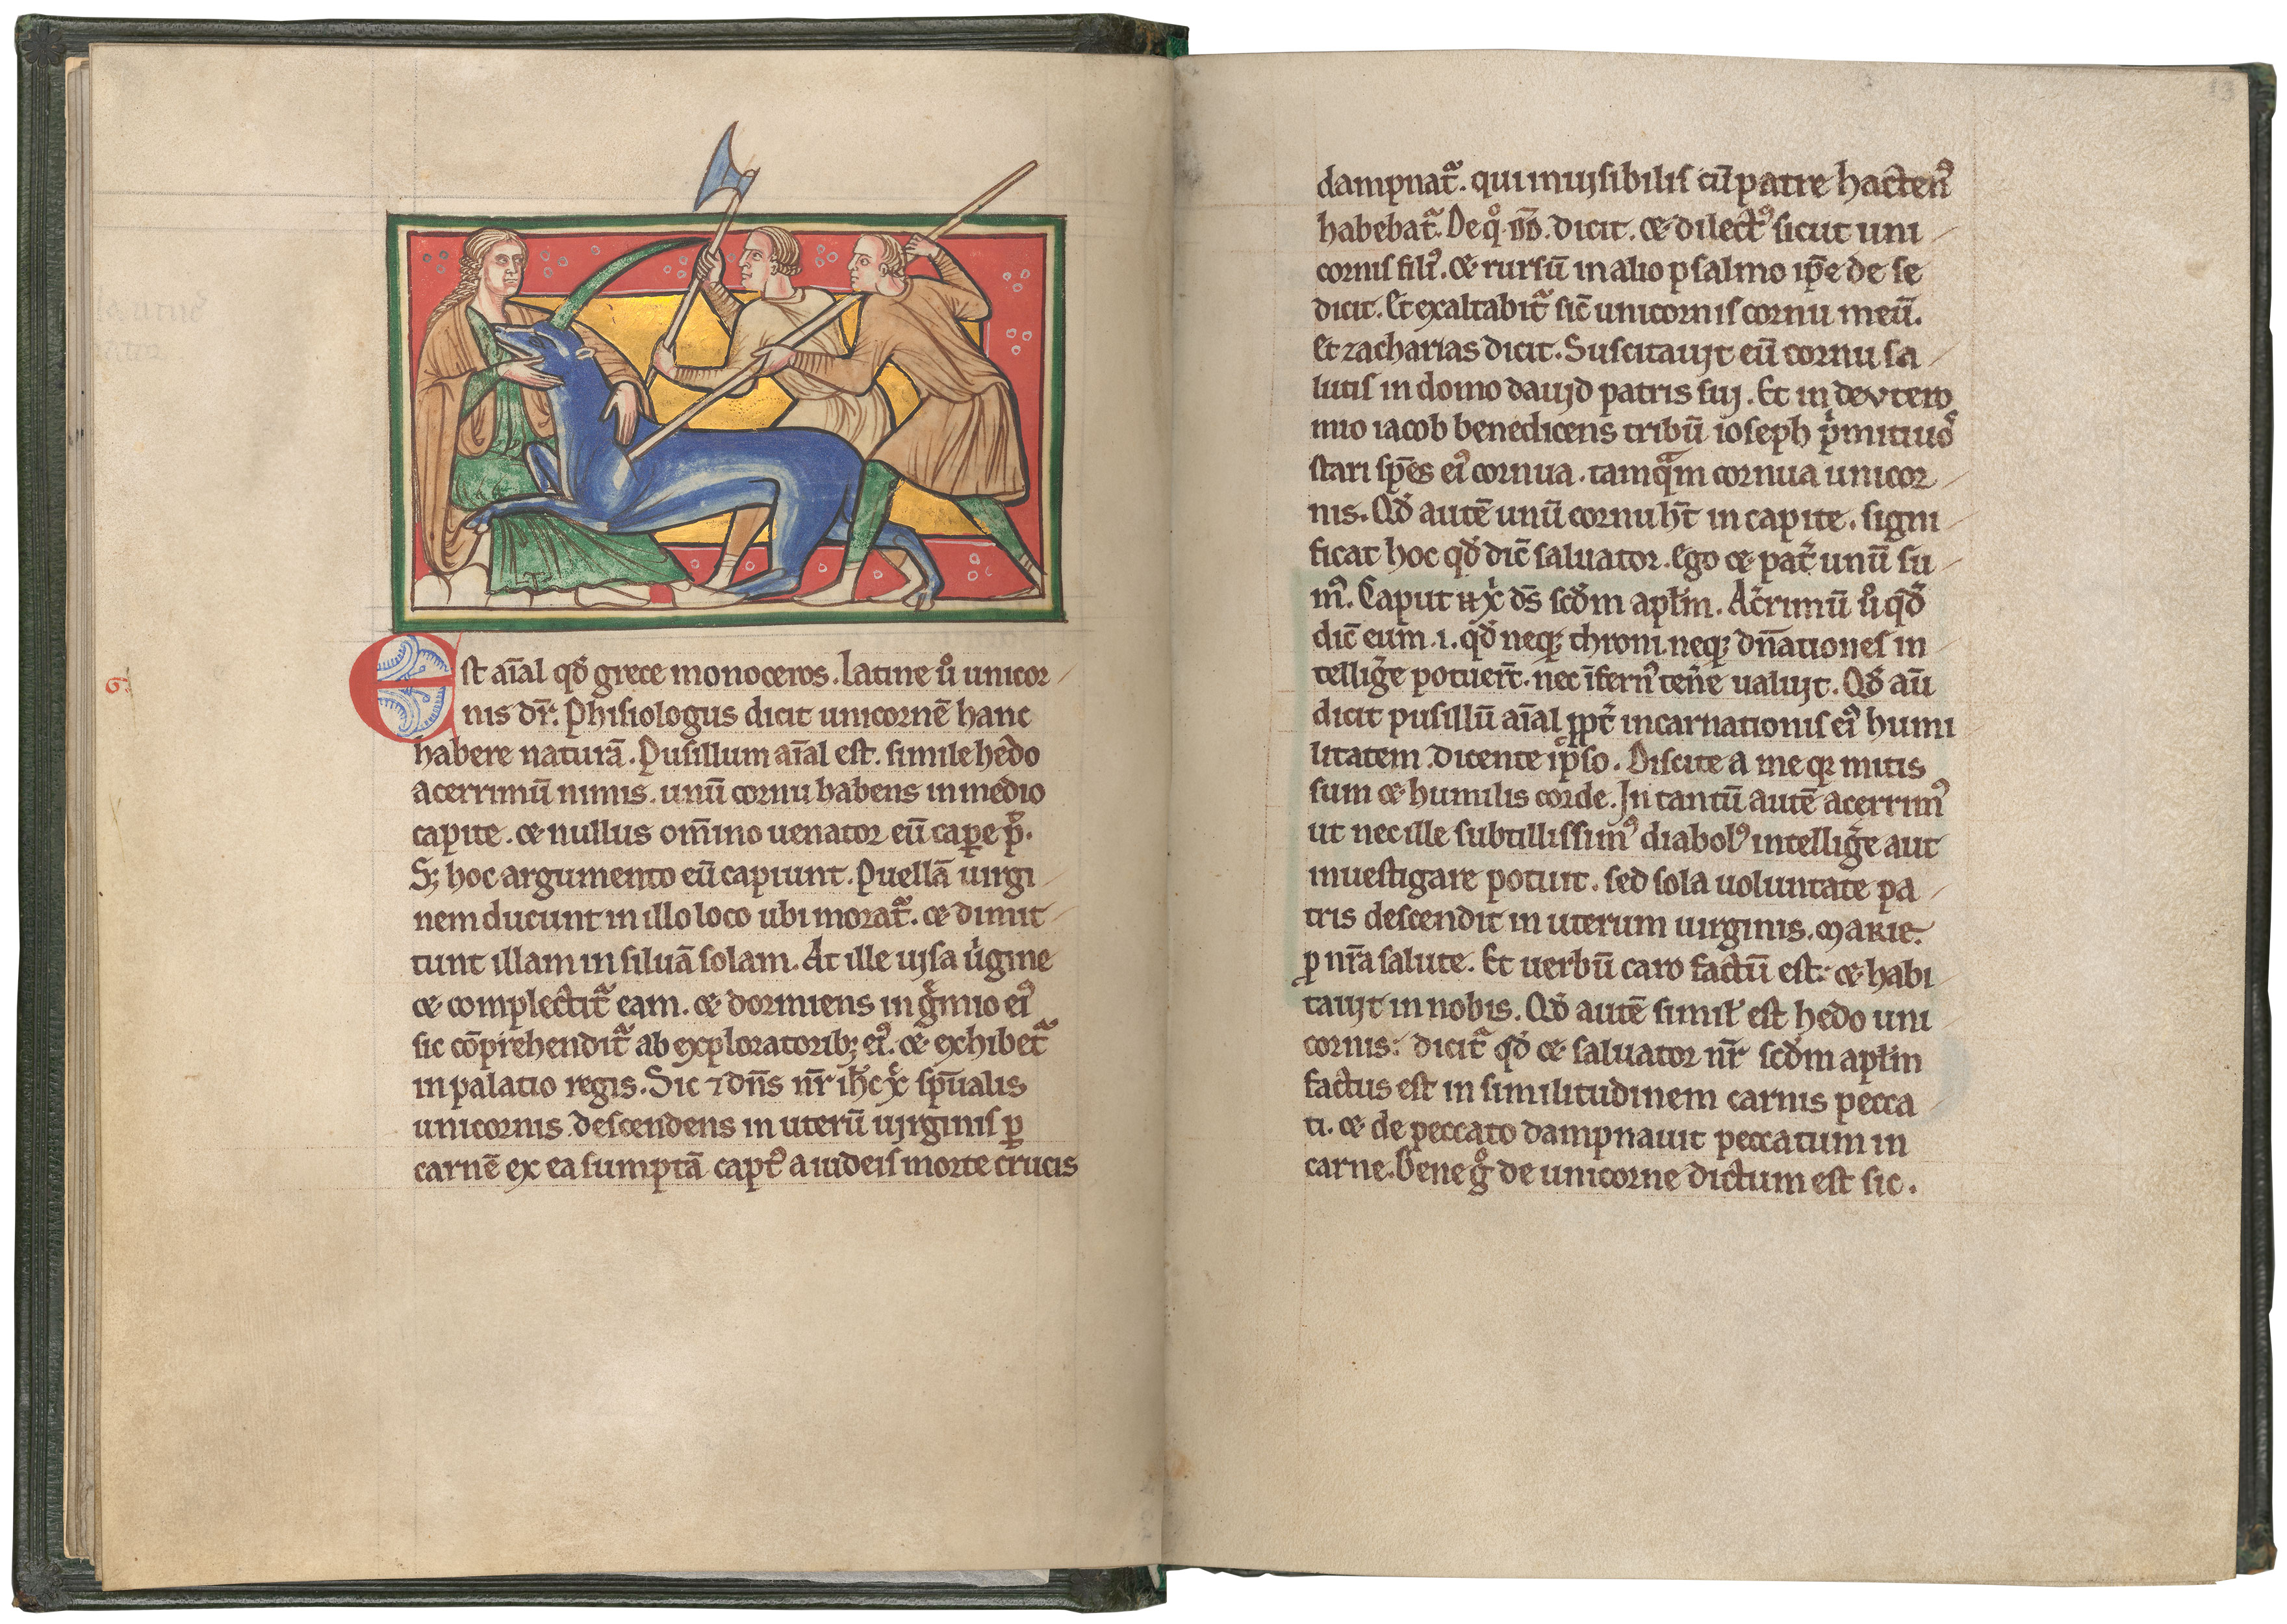 Est aīal qď grece monoceros. Latine ů unicor
nis dr̄. Phisiologus dicit unicornē hanc
habere naturā. Pusillum aīal est. simile hedo
acerrimū nimis. unū cornu habens in medio
capite. ⁊ nullus om̄ino uenator eū capꝑe p̊.
Sꝫ hoc argumento eū capiunt. Puellā uirgi
nem ducunt in illo loco ubi morat᷑. ⁊ dimit
tunt illam in siluā solam. At ille uisa ůgine
⁊ complectit᷑ eam. ⁊ dormiens in gͥmio eiꝰ
sic cōprehendit᷑ ab exploratoribꝫ eiꝰ. ⁊ exhibet᷑
in palatio regis. Sic ⁊ dn̄s nr̄ ih̄c xͥ sp̄ualis
unicornis descendens in uterū uirginis ꝑ
carnē ex ea sumptā captꝰ a iudeis morte crucis
dampnat᷑. qui inuisibilis cū patre hactenꝰ
habebat᷑. De q̊ dd̄. dicit. ⁊ dilectꝰ sicut uni
cornis filiꝰ. ⁊ rursū in alio psalmo ip̄e de se
dicit. Et exaltabit᷑ sic̄ unicornis cornu meū.
Et zacharias dicit. Suscitauit eū cornu sa
lutis in domo dauid patris sui. Et in deutero
mio iacob benedicens tribū ioseph pͥmitiuꝰ
stari sp̄es eiꝰ cornua. tamqᷓm cornua unicor
nis. Qď autē unū cornu h̄t in capite. signi
ficat hoc qď dic̄ saluator. Ego ⁊ pat᷑ unū su
mꝰ. Caput xͥ ds̄ scďm aptm̄. Ac᷑rimū ů qď
dic̄ eum .i. qď neqꝫ throni. neqꝫ dn̄ationes in
tellig᷑e potuer̄t. nec īfernꝰ ten᷑e ualuit. Qď aū
dicit pusillū aīal ꝓpt᷑ incarnationis eiꝰ humi
litatem dicente ip̄so. Discite a me qꝛ mitis
sum ⁊ humilis corde. In tantū autē acerrimꝰ
ut nec ille subtillissimꝰ diabolꝰ intellig᷑e aut
inuestigare potuit. sed sola uoluntate pa
tris descendit in uterum uirginis. marie.
ꝓ nr̄a salute. Et uerbū caro factū est: ⁊ habi
tauit in nobis. Qď autē simil᷑ est hedo uni
cornis: dicit᷑ qď ⁊ saluator nr̄ scďm aptm̄
factus est in similitudinem carnis pecca
ti. ⁊ de peccato dampnauit peccatum in
carne. Bene g̊ de unicorne dictum est sic.